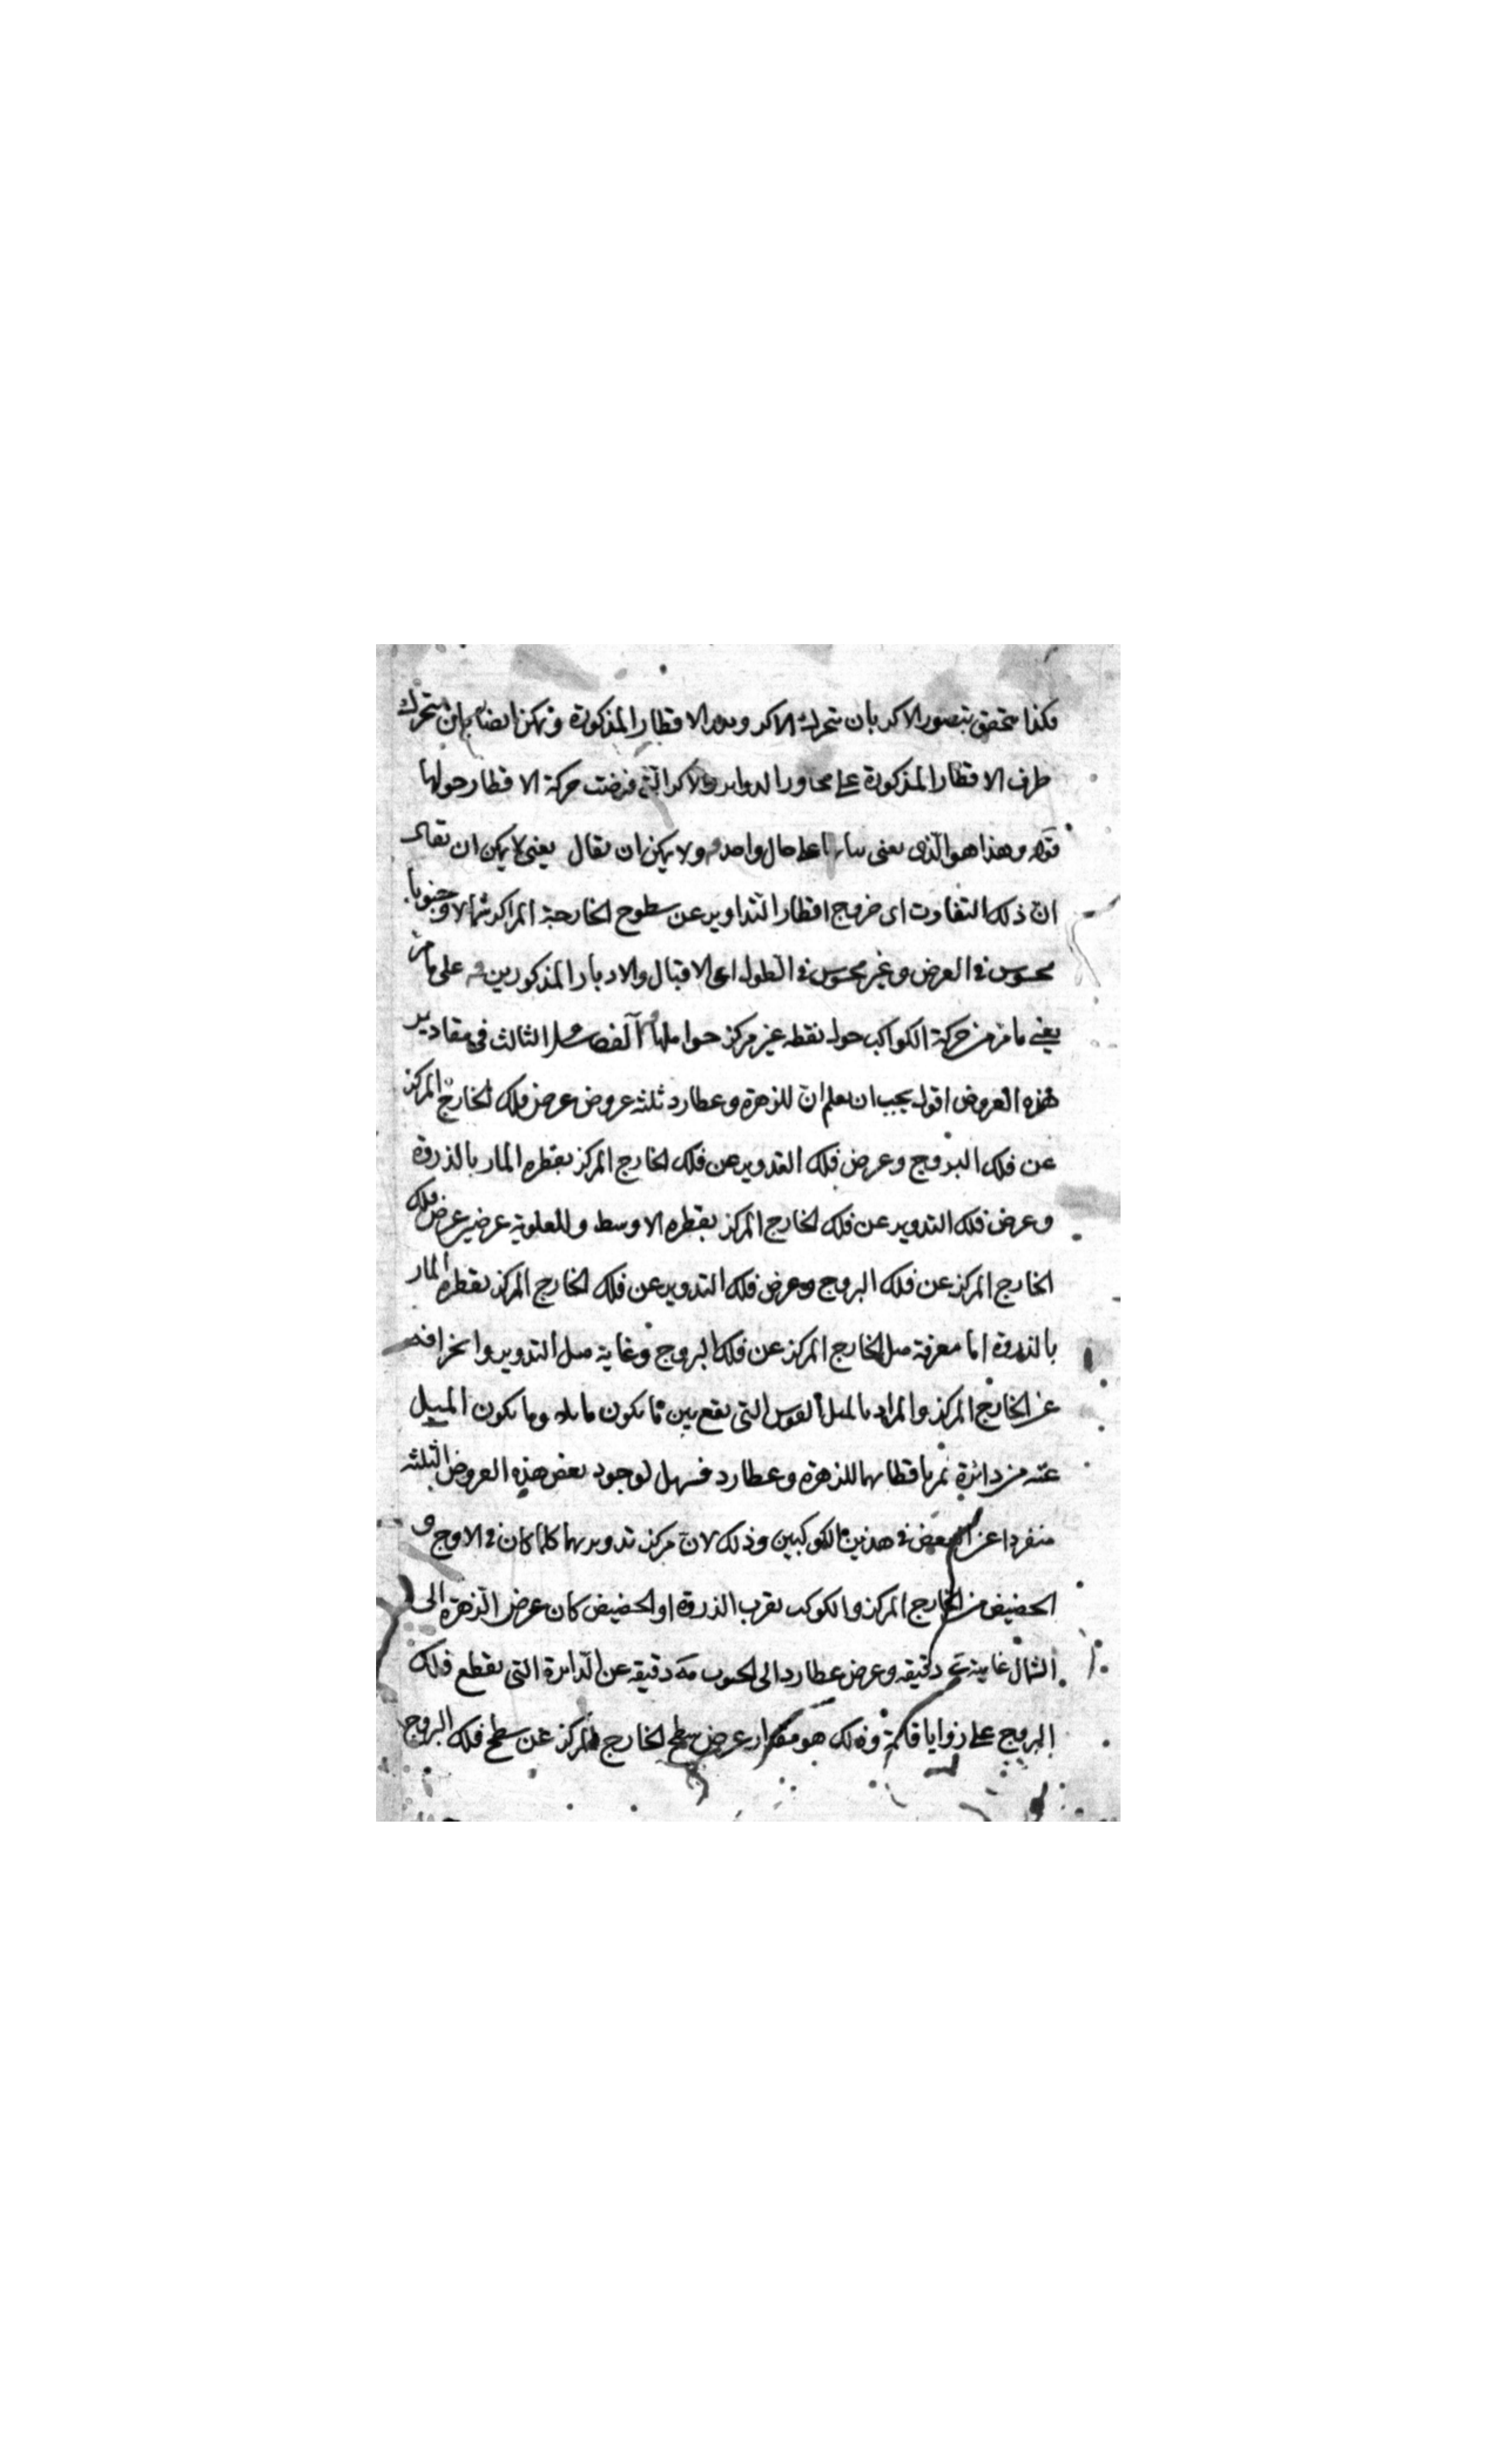 فكذا يتحقق بتصور الاكر بان يتحرك الاكر ويدير الاقطار المذكورة ويمكن ايضا بان يتحرك
طرف الاقطار المذكورة على محاور الدواير والاكر التي فرضت حركة الاقطار حولها
قوله وهذا هو الذي يعنى على حال واحد ولا يمكن ان يقال يعنى لا يمكن ان يقال
ان ذلك التفاوت اى خروج اقطار التداوير عن سطوح الخارجة المراكز شمالا وجنوبا
محسوس فى العرض وغير محسوس فى الطول اى الاقبال والادبار المذكورين على ما مر
يعنى ما مر من حركة الكواكب حول نقطه غير مركز حواملها الفصل الثالث فى مقادير
هذه العروض اقول يجب ان يعلم ان للزهرة وعطارد ثلثه عروض عرض فلك الخارج المركز
عن فلك البروج وعرض فلك التدوير عن فلك الخارج المركز بقطره المار بالذروة
وعرض فلك التدوير عن فلك الخارج المركز بقطره الاوسط وللعلوية عرضين عرض فلك
الخارج المركز عن فلك البروج وعرض فلك التدوير عن فلك الخارج المركز بقطره المار
بالذروة اما معرفة ميل الخارج المركز عن فلك البروج وغاية ميل التدوير وانحرافه
عن الخارج المركز والمراد بالميل القوس التى يقع بين ما يكون مايله وما يكون الميل
عنه من دائرة تمر باقطابهما للزهرة وعطارد فسهل لوجود بعض هذه العروض الثلثه
منفردا عن البعض فى هذين الكوكبين وذلك لان مركز تدويريهما كلما كان فى الاوج و
الحضيض من الخارج المركز والكوكب بقرب الذروة او الحضيض كان عرض الزهرة الى
الشمال غايته ى دقيقه وعرض عطارد الى الجنوب مه دقيقه عن الدايرة التى يقطع فلك
البروج على زوايا قائمة وذلك هو مقدار عرض سطح الخارج المركز عن سطح فلك البروج